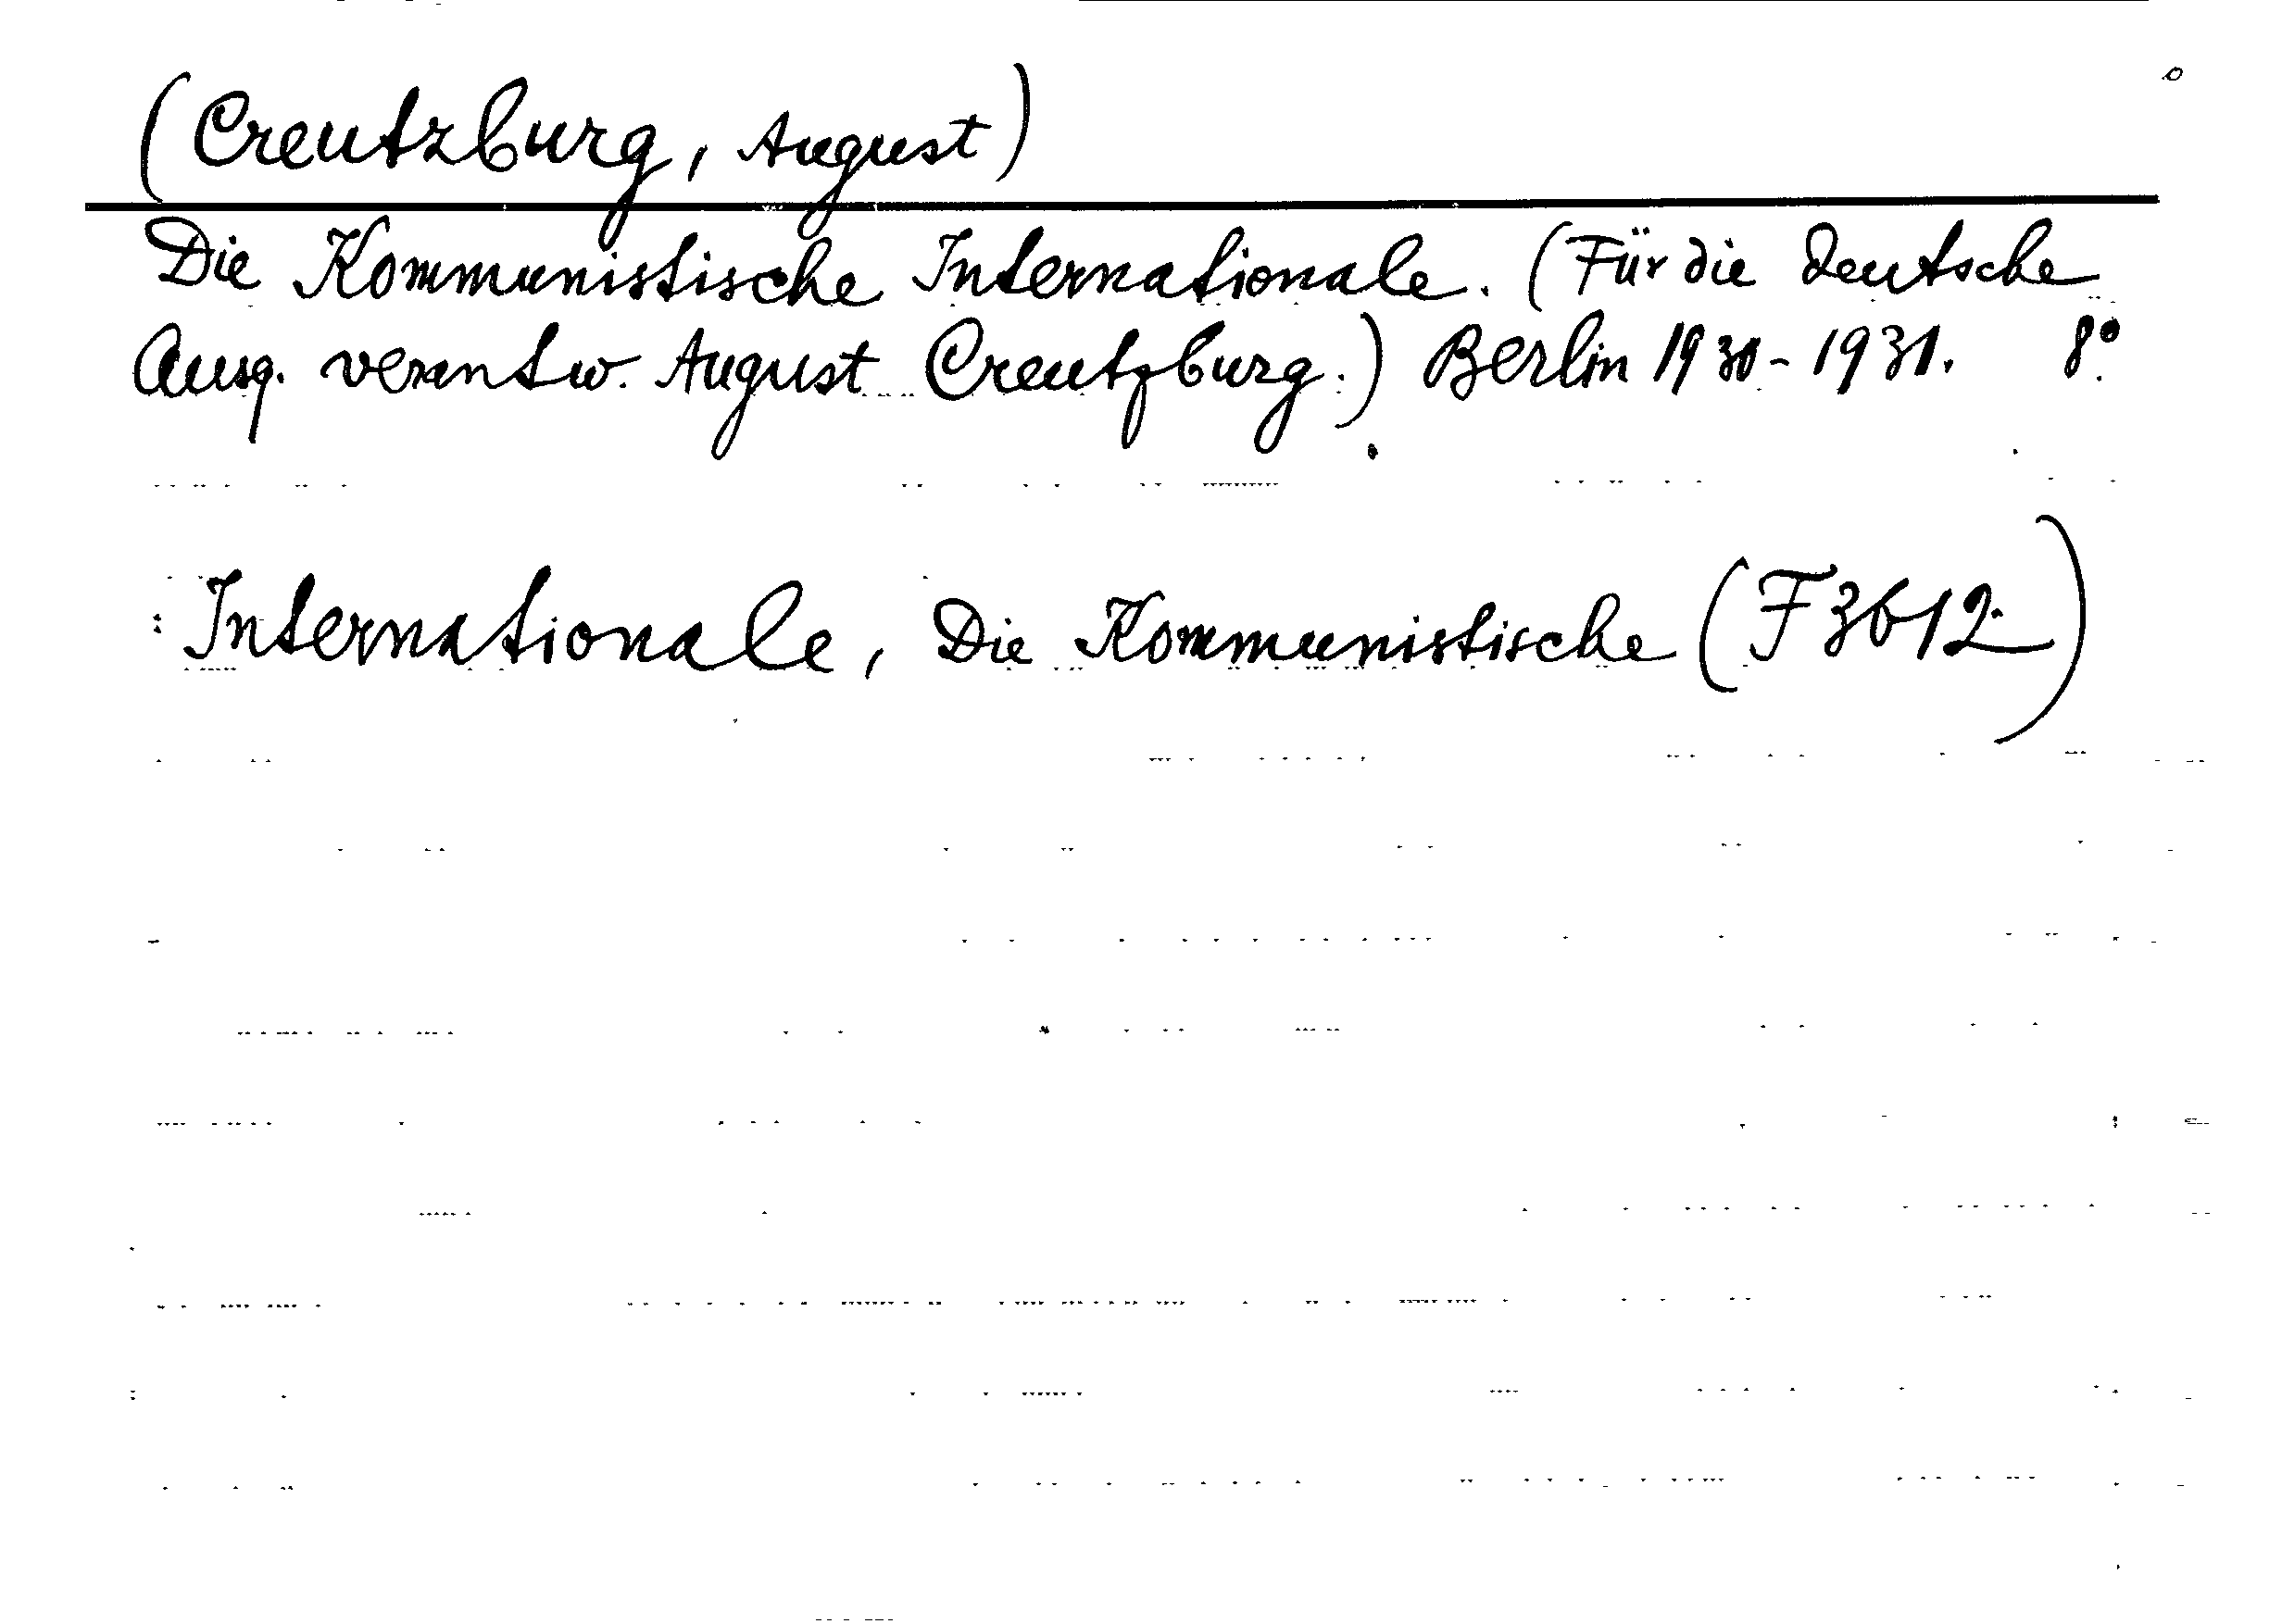 (Creutzburg, August)
Die Kommunistische Internationale. (Für die deutsche
Ausg. verantw. August Creutzburg.) Berlin 1930-1931. 8°
Internationale, Die Kommunistische (F3612)